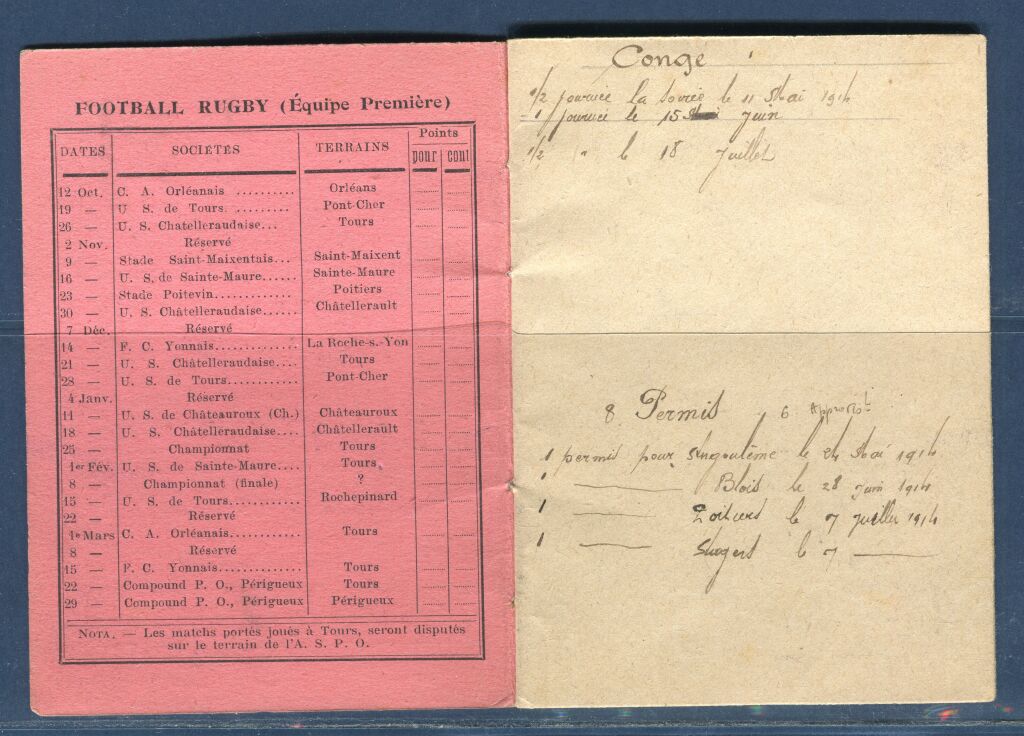 FOOTBALL RUGBY (Équipe Première)
DATES SOCIÉTÉS TERRAINS Points
pour cont
12 Oct. C. A. Orléanais .......... Orléans
19 — U S. de Tours. ......... Pont-Cher
26 — U. S. Chatelleraudaise... Tours
2 Nov. Réservé
9 — Stade Saint-Maixentais... Saint-Maixent
16 — U. S. de Sainte-Maure...... Sainte-Maure
23 — Stade Poitevin............. Poitiers
30 — U. S. Châtelleraudaise...... Châtellerault
7 Déc. Réservé
14 — F. C. Yonnais............. La Roche-s.-Yon
21 — U. S. Châtelleraudaise.... Tours
28 — U. S. de Tours............ Pont-Cher
4 Janv. Réservé
11 — U. S. de Châteauroux (Ch.) Châteauroux
18 — U. S. Châtelleraudaise.... Châtellerault
25 — Championnat Tours
1er Fév. U. S. de Sainte-Maure.... Tours
8 — Championnat (finale) ?
15 — U. S. de Tours............ Rochepinard
22 — Réservé
1e Mars C. A. Orléanais........... Tours
8 — Réservé
15 — F. C. Yonnais............. Tours
22 — Compound P. O., Périgueux Tours
29 — Compound P. O., Périgueux Périgueux
NOTA. — Les matchs portés joués à Tours, seront disputés
sur le terrain de l'A. S. P. O.
Congé
1/2 journée la soirée le 11 Mai 1914
1 journée le 15 Juin
1/2 " le 18 Juillet
8 Permis 6
1 permis pour Angoulême le 24 Mai 1914
1 — Blois le 28 Juin 1914
1 — Poitiers le 7 Juillet 1914
1 — Angers le 7 —